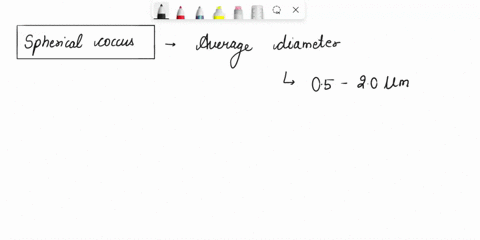 Spherical coccus → Average diameter
↳ 0.5 - 2.0 Um